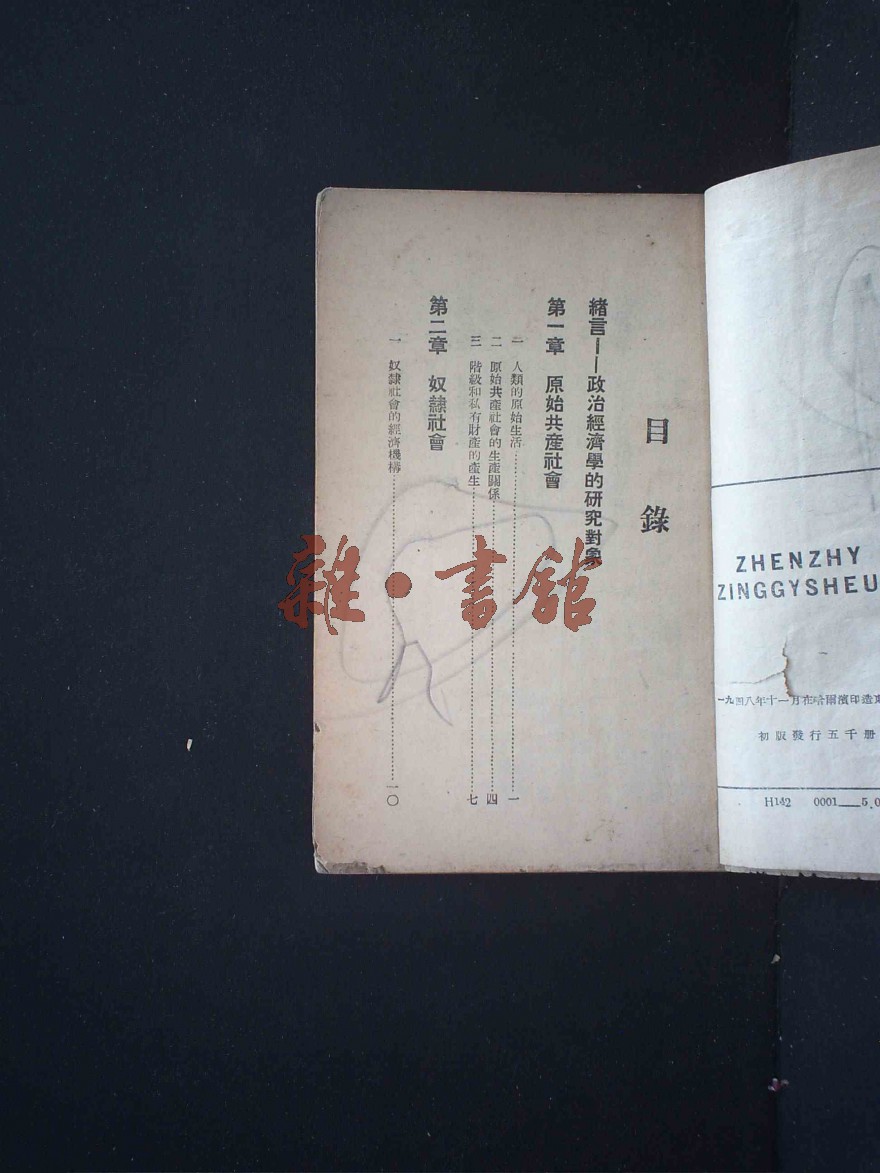 目錄
緒言——政治經濟學的研究對象
第一章 原始共產社會
一 人類的原始生活……一
二 原始共產社會的生產關係……四
三 階級和私有財產的產生……七
第二章 奴隸社會
一 奴隸社會的經濟機構……一〇
雜·書館
ZHENZHY
ZINGGYSHEU
一九四八年十一月在哈爾濱印造
初版發行五千册
H142 0001—5.0